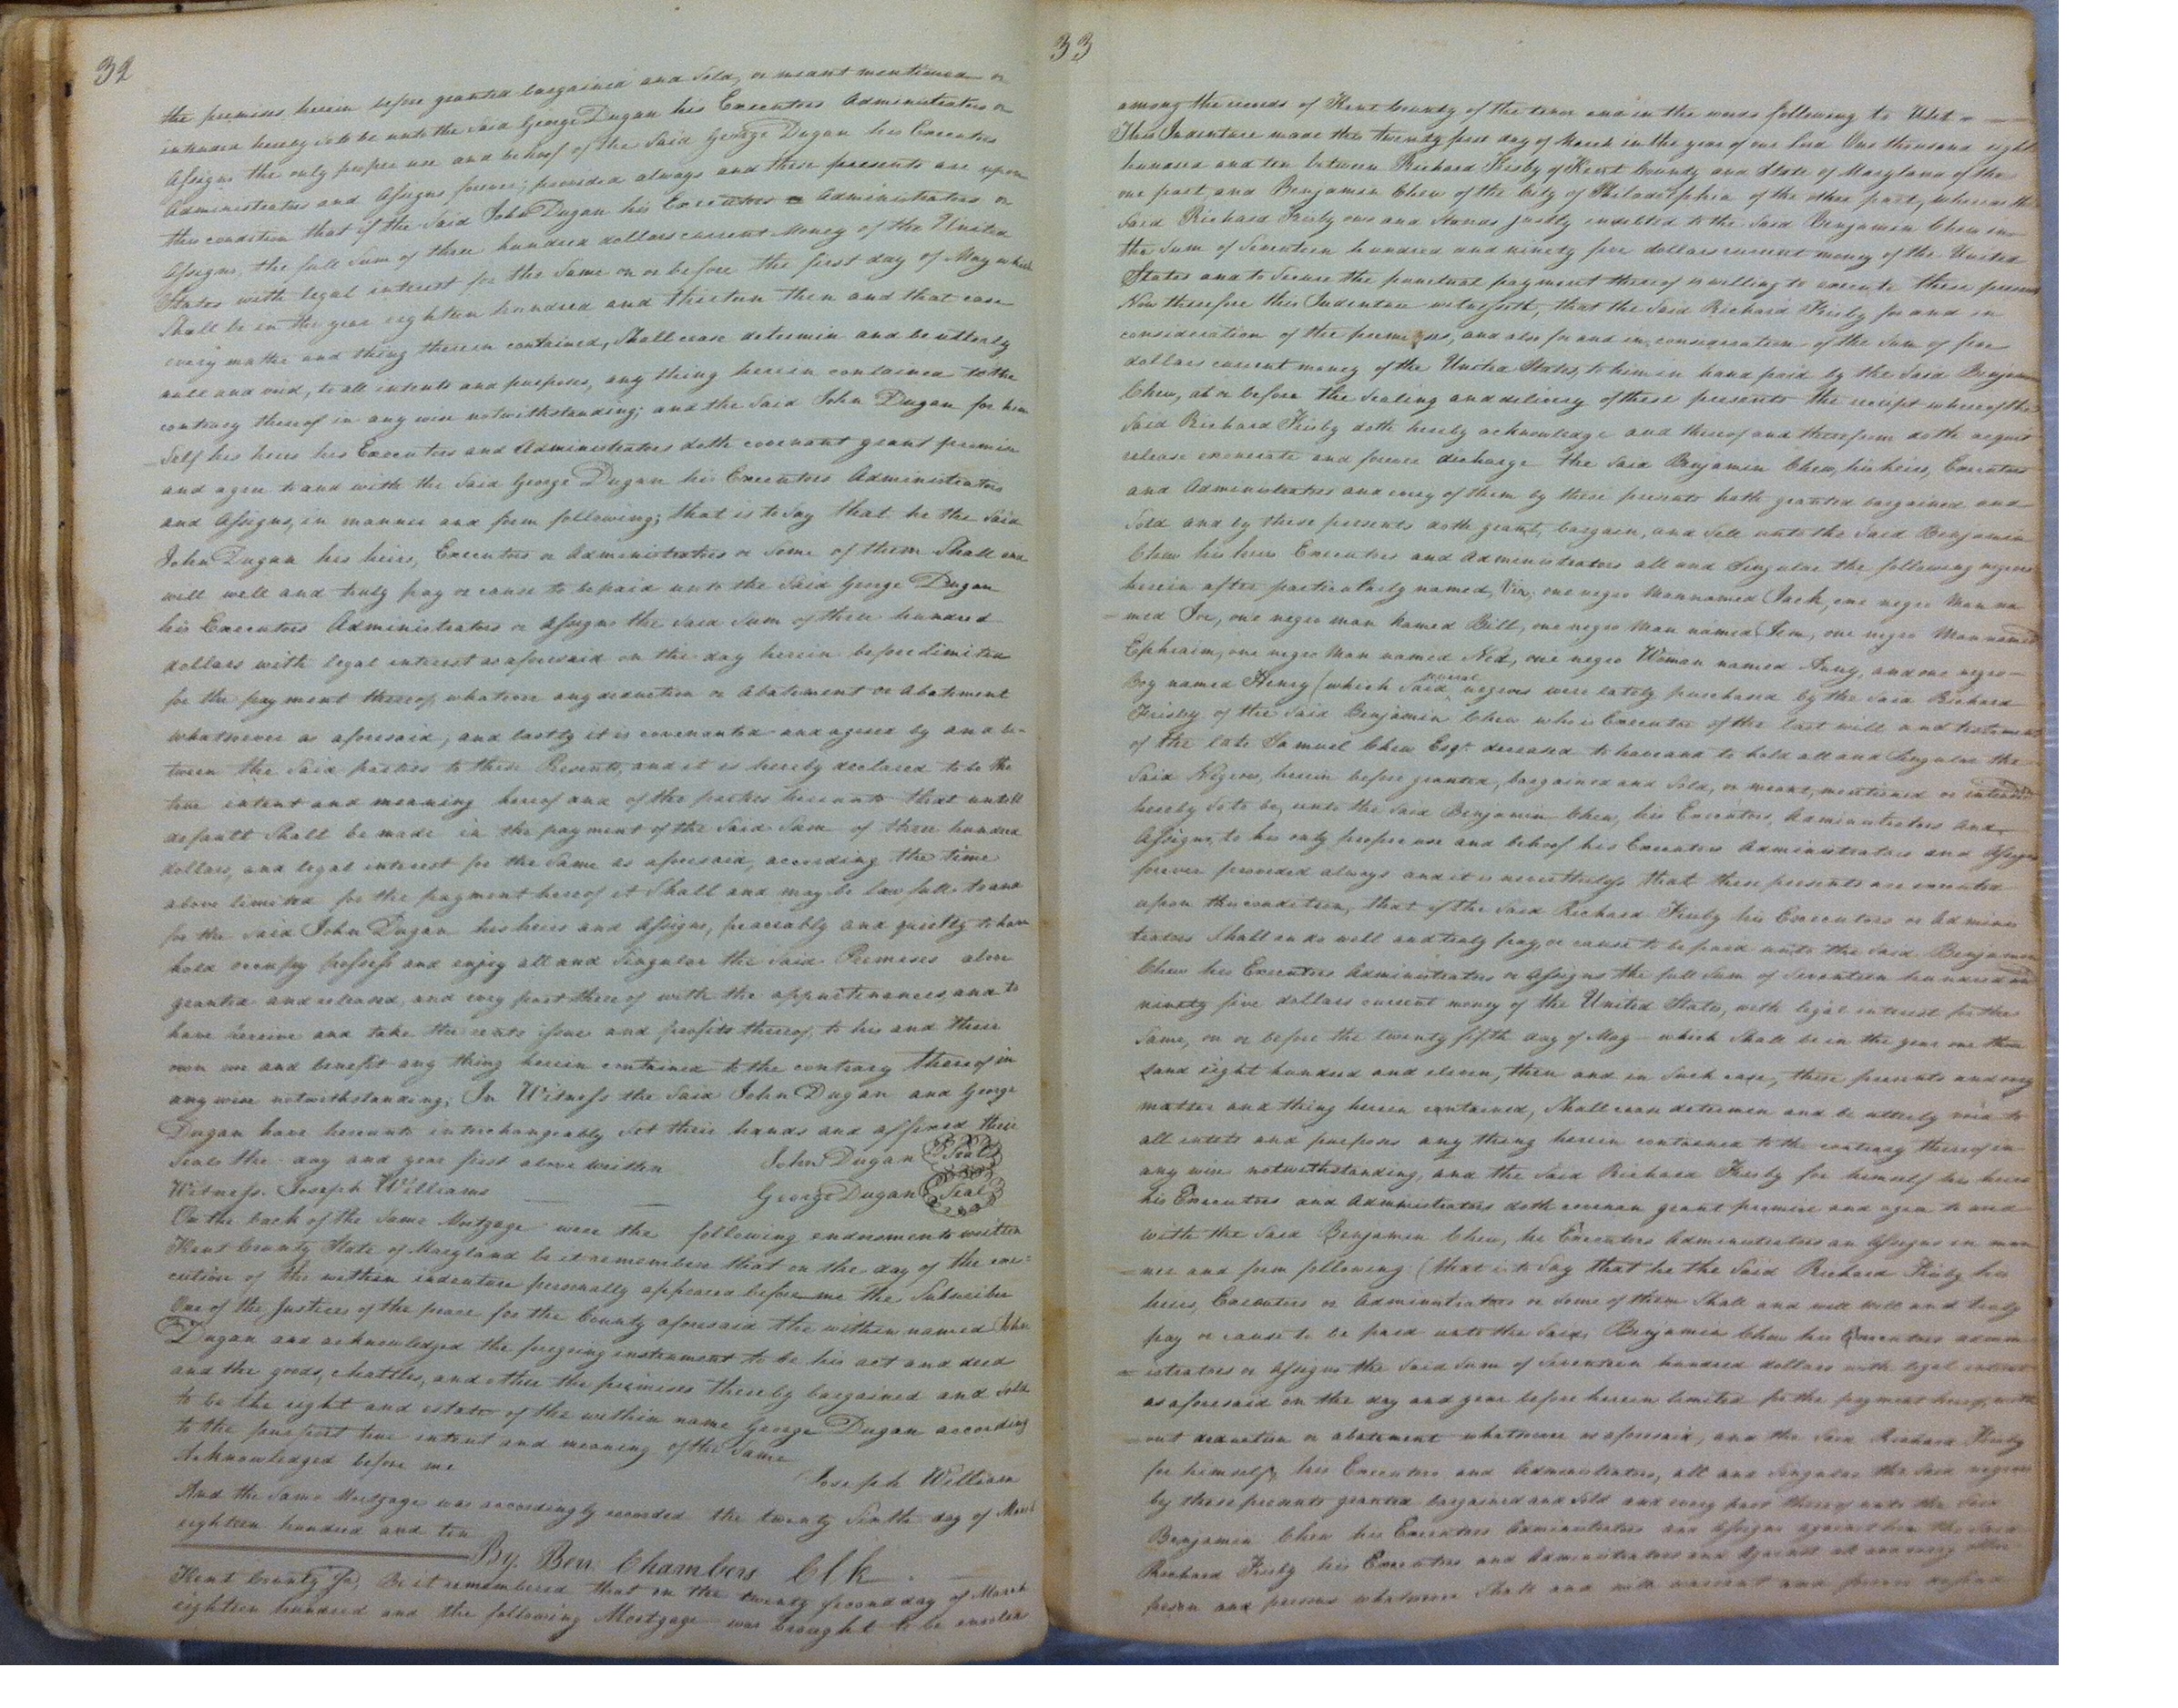 32
the premises herein before granted bargained and Sold, or meant mentioned or
intended hereby so to be unto the Said George Dugan his Executors Administrators or
Assigns the only proper use and behoof of the Said George Dugan his Executors
Administrators and Assigns forever; provided always and these presents are upon
this condition that if the Said John Dugan his Executors or Administrators or
Assigns, the full Sum of three hundred dollars current Money of the United
States with legal interest for the Same on or before the first day of May which
Shall be in the year eighteen hundred and thirteen then and that case
every matter and thing therein contained, Shall cease determin and be utterly
null and void, to all intents and purposes, any thing herein contained to the
contrary thereof in any wise notwithstanding; and the Said John Dugan for him
Self his heirs his Executors and Administrators doth covenant grant promise
and agree to and with the Said George Dugan his Executors Administrators
and Assigns, in manner and form following; that is to Say that he the Said
John Dugan his heirs, Executors or Administrators or Some of them Shall and
will well and truly pay or cause to be paid unto the Said George Dugan
his Executors Administrators or Assigns the Said Sum of three hundred
dollars with legal interest as aforesaid on the day herein before limited
for the payment thereof, without any deduction or Abatement or Abatement
whatsoever as aforesaid, and lastly it is covenanted and agreed by and be-
tween the Said parties to these Presents, and it is hereby declared to be the
true intent and meaning hereof and of the parties hereunto that untill
default Shall be made in the payment of the Said Sum of three hundred
dollars, and legal interest for the Same as aforesaid, according the time
above limited for the payment hereof it Shall and may be lawfull to and
for the Said John Dugan his heirs and Assigns, peaceably and quietly to have
hold occupy possess and enjoy all and Singular the Said Premises above
granted and released, and every part thereof with the appurtenances, and to
have receive and take the rents issues and profits thereof, to his and their
own use and benefit any thing herein contained to the contrary thereof in
any wise notwithstanding; In Witness the Said John Dugan and George
Dugan have hereunto interchangeably Set their hands and affixed their
Seals the day and year first above written John Dugan Seal
Witness. Joseph Williams George Dugan Seal
On the back of the Same Mortgage were the following endorsments written
Kent County State of Maryland be it remembered that on the day of the exe=
cution of the within indenture personally appeared before me the Subscriber
One of the Justices of the peace for the County aforesaid the within named John
Dugan and acknowledged the foregoing instrument to be his act and deed
and the goods, chattles, and other the premises thereby bargained and Sold
to be the right and estate of the within name George Dugan according
to the purport true intent and meaning of the Same
Acknowledged before me Joseph William
And the Same Mortgage was accordingly recorded the twenty Sixth day of March
eighteen hundred and ten
By. Ben: Chambers Clk.
Kent County Sc, Be it remembered that on the twenty Second day of March
eighteen hundred and the following Mortgage was brought to be enrolled
33
among the records of Kent County of the tenor and in the words following to Wit
This Indenture made this twenty first day of March in the year of our Lord One thousand eight
hundred and ten between Richard Frisby of Kent County and State of Maryland of the
one part, and Benjamin Chew of the City of Philadelphia of the other part, whereas the
Said Richard Frisby owes and Stands justly indebted to the Said Benjamin Chew in
the Sum of Seventeen hundred and ninety five dollars current money of the United
States and to Secure the punctual payment thereof is willing to execute these presents
Now therefore this Indenture witnesseth, that the Said Richard Frisby for and in
consideration of the premises, and also for and in consideration of the Sum of five
dollars current money of the United States, to him in hand paid by the Said Benjamin
Chew, at or before the Sealing and delivery of these presents the receipt whereof the
Said Richard Frisby doth hereby acknowledge and thereof and therefrom doth acquit
release exonerate and forever discharge the Said Benjamin Chew, his heirs, Executors
and Administrators and every of them by these presents hath granted bargained and
Sold and by these presents doth grant, bargain, and Sell unto the Said Benjamin
Chew his heirs Executors and Administrators all and Singular the following negroes
herein after particularly named, Viz: one negro Man named Jack, one negro Man na
=med Joe, one negro man named Bill, one negro Man named Jem, one negro Man named
Ephraim, one negro Man named Ned, one negro Woman named Anny, and one negro
Boy named Henry (which Said several negroes were lately purchased by the Said Richard
Frisby of the Said Benjamin Chew who is Executor of the last will and testament
of the late Samuel Chew Esqr. deceased to have and to hold all and Singular the
Said Negroes, herein before granted, bargained and Sold, or meant, mentioned or intended
hereby So to be, unto the Said Benjamin Chew, his Executors, Administrators and
Assigns, to his only proper use and behoof his Executors Administrators and Assigns
forever provided always and it is nevertheless that these presents are executed
upon this condition, that if the Said Richard Frisby his Executors or Admins
trators Shall on do well and truly pay, or cause to be paid unto the Said Benjamin
Chew his Executors Administrators or Assigns the full Sum of Seventeen hundred and
ninety five dollars current money of the United States, with legal interest for the
Same, on or before the twenty fifth day of May which Shall be in the year one thou
sand eight hundred and eleven, then and in Such case, these presents and every
matter and thing herein contained, Shall cease determin and be utterly void to
all intents and purposes any thing herein contained to the contrary thereof in
any wise notwithstanding, and the Said Richard Frisby for himself his heirs
his Executors and Administrators doth covenan grant promise and agree to and
with the Said Benjamin Chew, his Executors Administrators an Assigns in man
=ner and form following (that is to Say that he the Said Richard Frisby his
heirs, Executors or Administrators or Some of them Shall and will well and truly
pay or cause to be paid unto the Said Benjamin Chew his Executors admin
=istrators or Assigns the Said Sum of Seventeen hundred dollars with legal interest
as aforesaid on the day and year before herein limited for the payment hereof, with
=out deduction or abatement whatsoever as aforesaid, and the Said Richard Frisby
for himself, his Executors and Administrators, all and Singular the Said negroes
by these presents granted bargained and Sold and every part thereof unto the Said
Benjamin Chew his Executors Administrators and Assigns against him the Said
Richard Frisby his Executors and Administrators and Against all and every other
person and persons whatsoever Shall and will warrant and forever defend